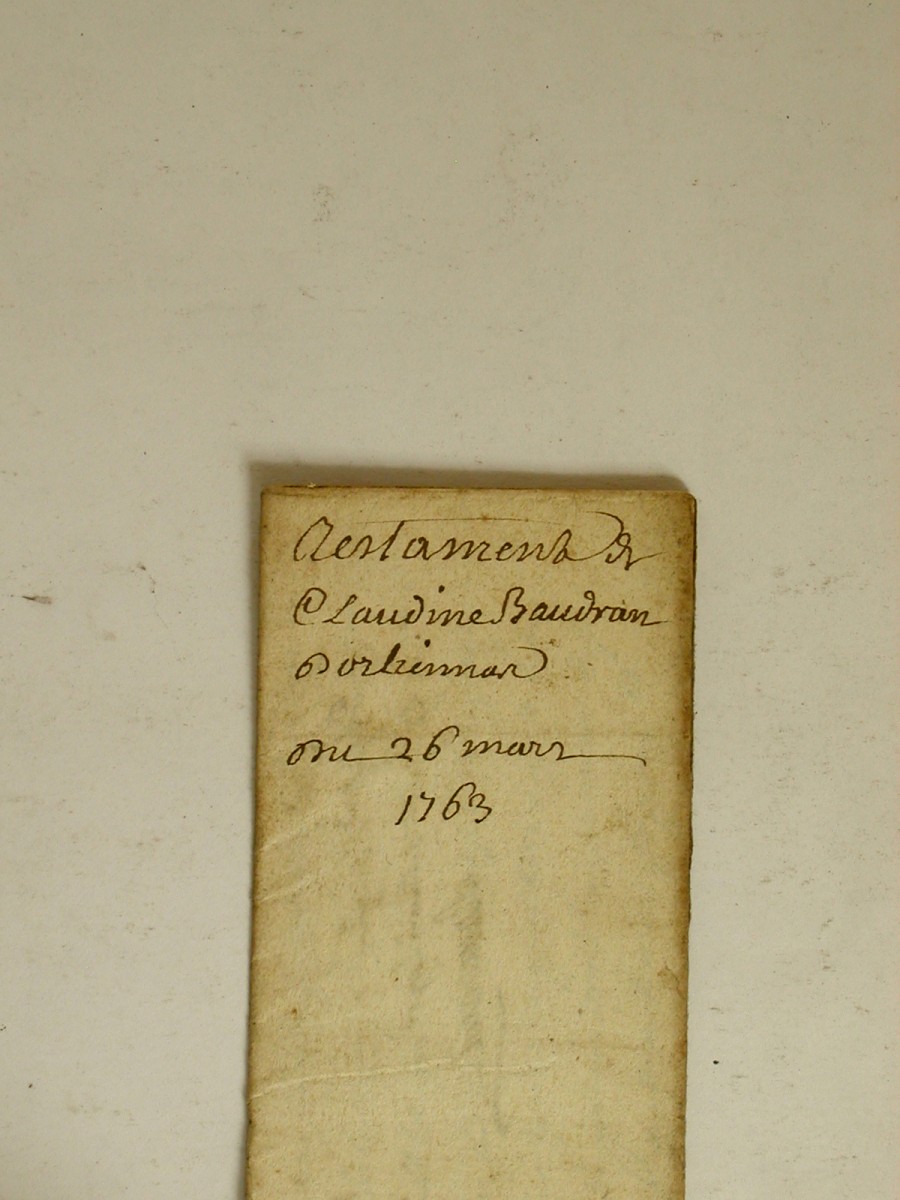 Testament de
Claudine Baudran
du 26 mars
1763